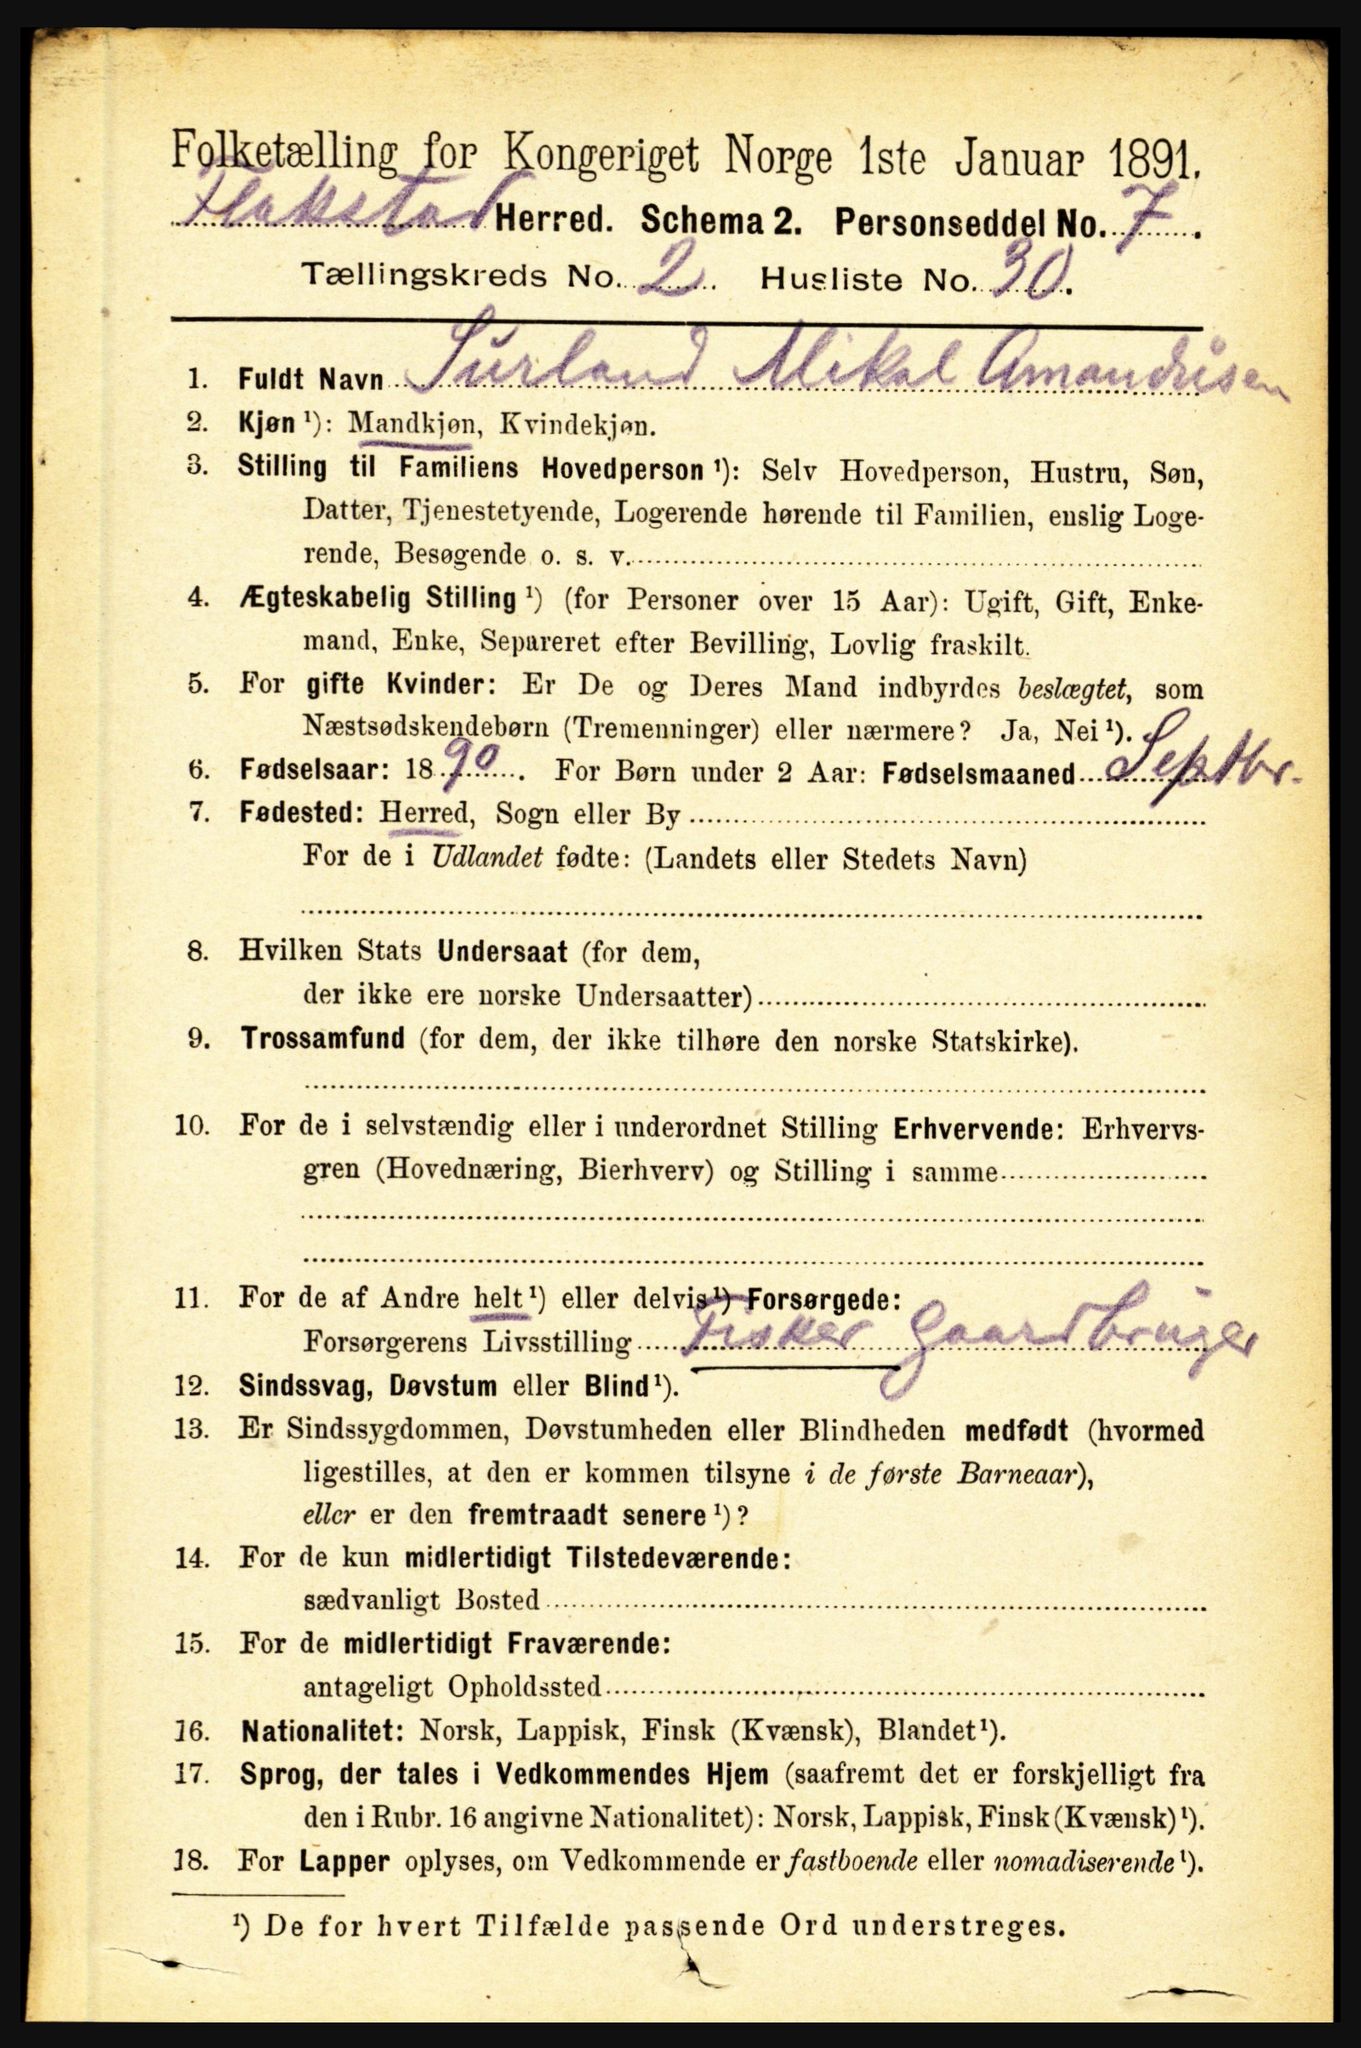 Folketælling for Kongeriget Norge 1ste Januar 1891.
Flakstad Herred. Schema 2. Personseddel No. 7.
Tællingskreds No. 2. Husliste No. 30.
1. Fuldt Navn Surland Mikal Amandusen
2. Kjøn ¹): Mandkjøn, Kvindekjøn.
3. Stilling til Familiens Hovedperson ¹): Selv Hovedperson, Hustru, Søn,
Datter, Tjenestetyende, Logerende hørende til Familien, enslig Loge-
rende, Besøgende o. s. v.
4. Ægteskabelig Stilling ¹) (for Personer over 15 Aar): Ugift, Gift, Enke-
mand, Enke, Separeret efter Bevilling, Lovlig fraskilt.
5. For gifte Kvinder: Er De og Deres Mand indbyrdes beslægtet, som
Næstsødskendebørn (Tremenninger) eller nærmere? Ja, Nei ¹).
6. Fødselsaar: 1890. For Børn under 2 Aar: Fødselsmaaned Septbr.
7. Fødested: Herred, Sogn eller By
For de i Udlandet fødte: (Landets eller Stedets Navn)
8. Hvilken Stats Undersaat (for dem,
der ikke ere norske Undersaatter)
9. Trossamfund (for dem, der ikke tilhøre den norske Statskirke).
10. For de i selvstændig eller i underordnet Stilling Erhvervende: Erhvervs-
gren (Hovednæring, Bierhverv) og Stilling i samme
11. For de af Andre helt ¹) eller delvis ¹) Forsørgede:
Forsørgerens Livsstilling Fisker Gaardbruger
12. Sindssvag, Døvstum eller Blind ¹).
13. Er Sindssygdommen, Døvstumheden eller Blindheden medfødt (hvormed
ligestilles, at den er kommen tilsyne i de første Barneaar),
eller er den fremtraadt senere ¹)?
14. For de kun midlertidigt Tilstedeværende:
sædvanligt Bosted
15. For de midlertidigt Fraværende:
antageligt Opholdssted
16. Nationalitet: Norsk, Lappisk, Finsk (Kvænsk), Blandet ¹).
17. Sprog, der tales i Vedkommendes Hjem (saafremt det er forskjelligt fra
den i Rubr. 16 angivne Nationalitet): Norsk, Lappisk, Finsk (Kvænsk) ¹).
18. For Lapper oplyses, om Vedkommende er fastboende eller nomadiserende ¹).
¹) De for hvert Tilfælde passende Ord understreges.